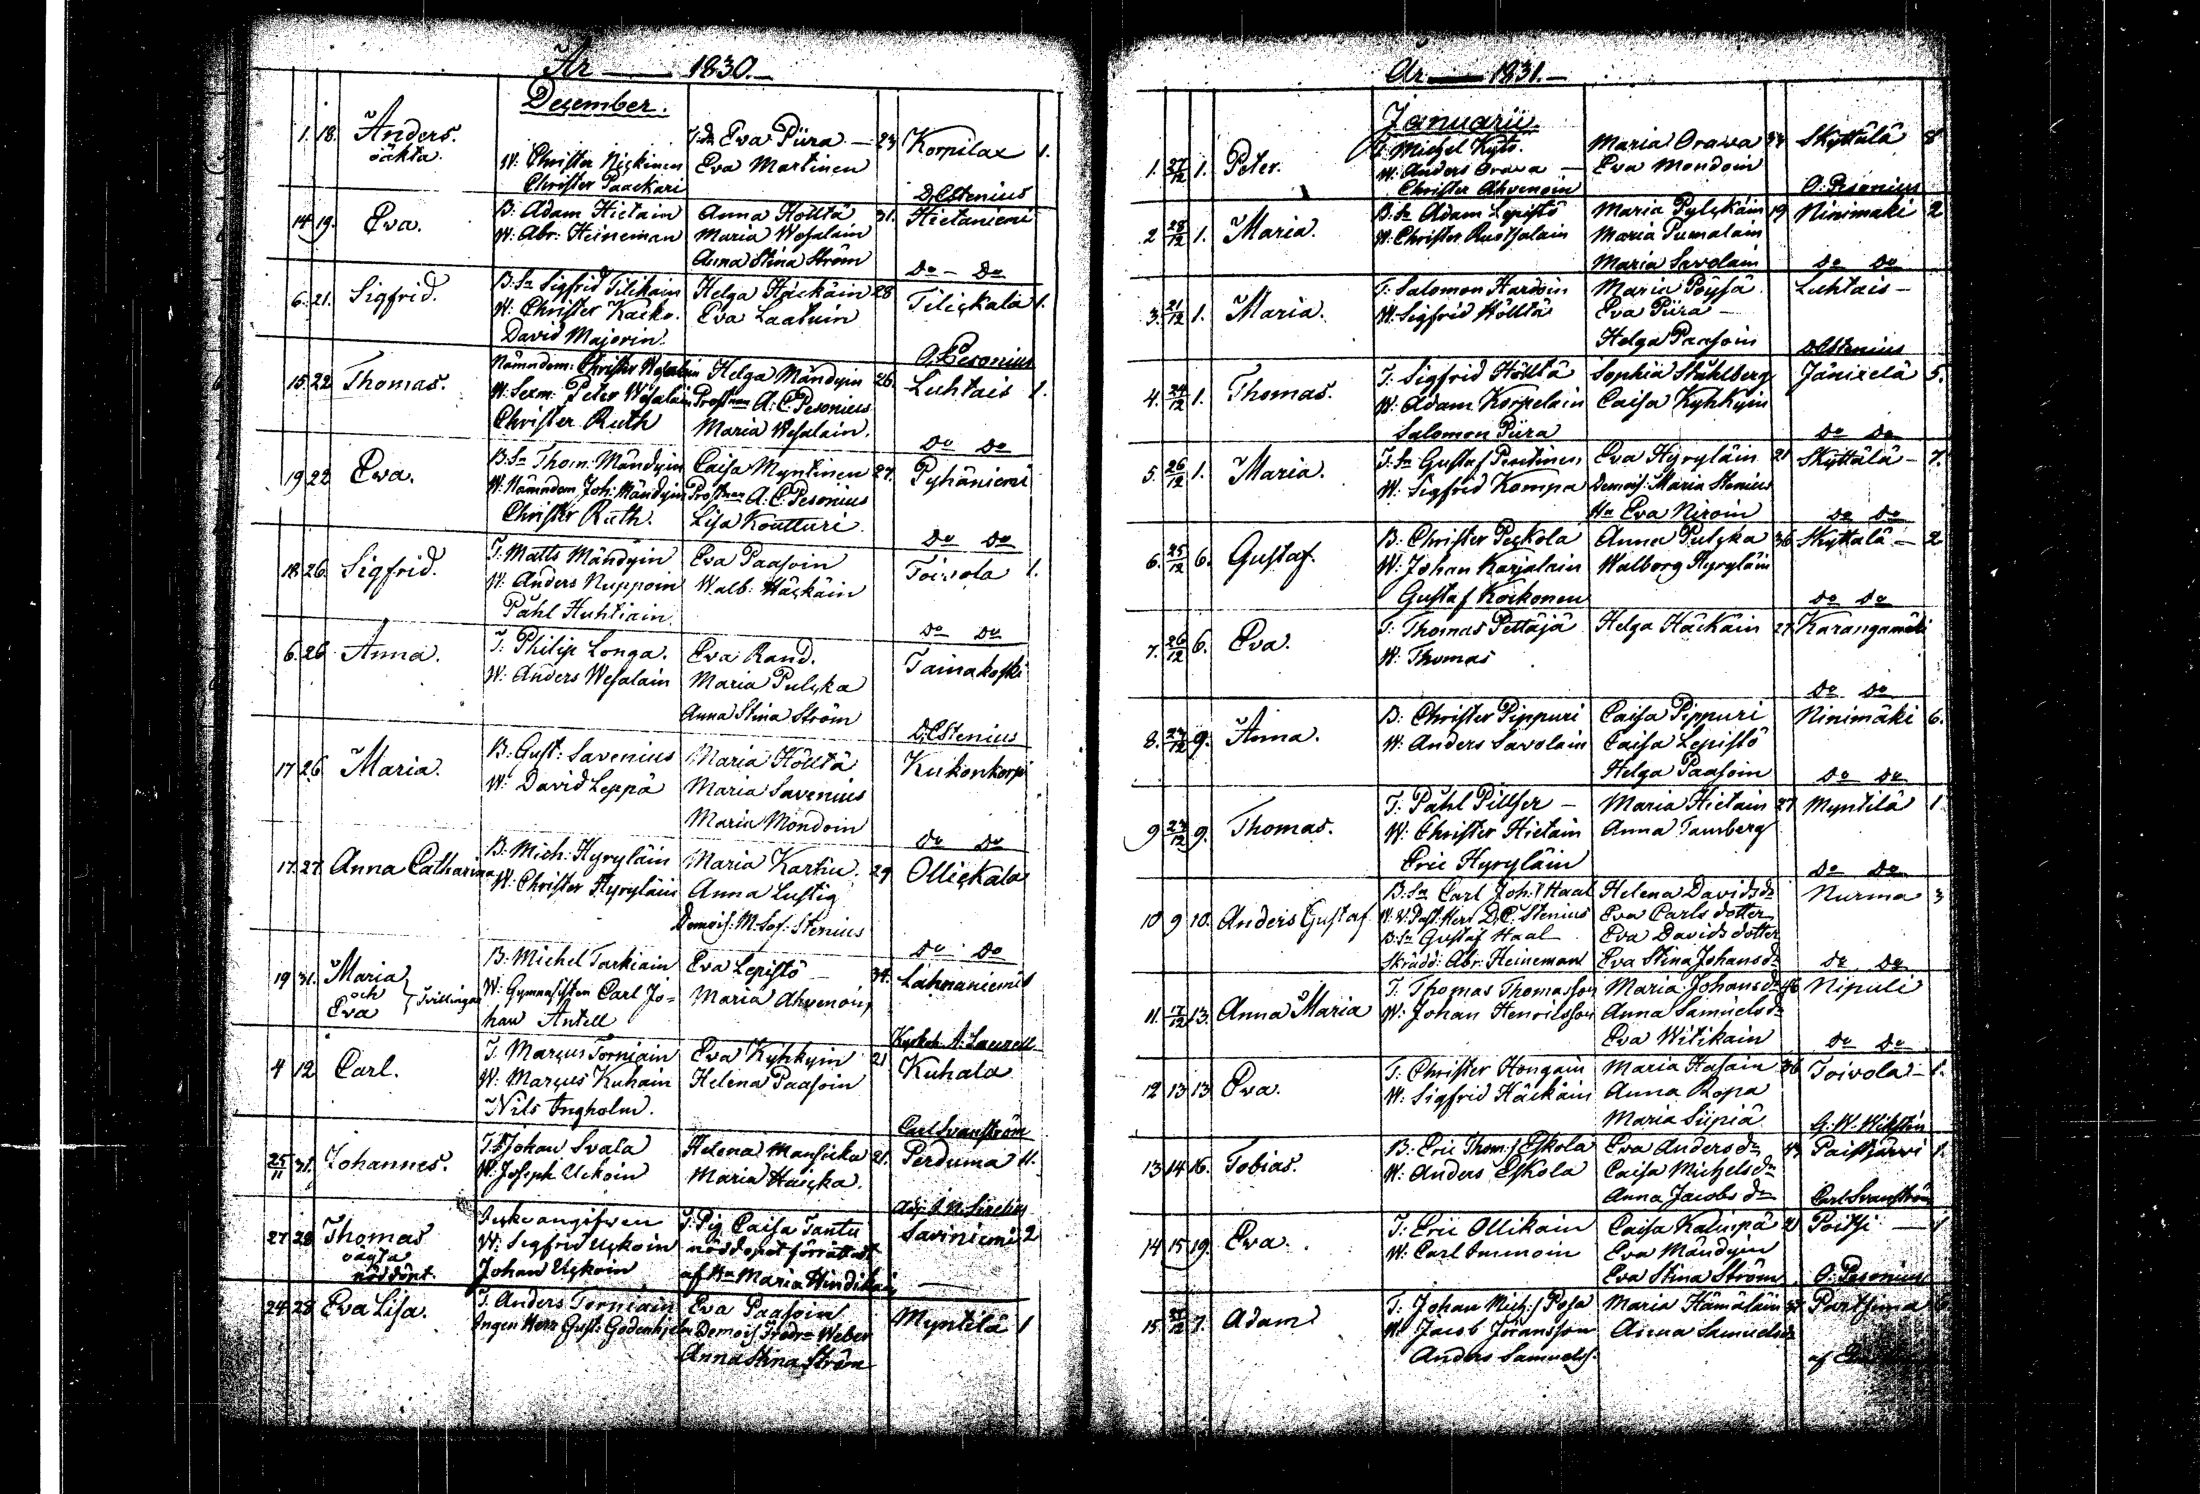 År — 1830.—
Dezember.
1. 18. Anders. J:dr Eva Püra — 23 Korpilax 1.
oäkta. W: Christer Nickinen Eva Martinen
Christer Paackari D.C. Stenius
14 19. Eva. B: Adam Hietain Anna Hölttä 31. Hietaniemi
W: Abr: Heineman Maria Wesalain
Anna Stina Ström Do — Do
6. 21. Sigfrid. B. Sn Sigfrid Tilikain Helga Häckäin 28 Tilickala 1.
W: Christer Kaiko. Eva Laatuin
David Majorin. O: Pesonius
15. 22 Thomas. Nämndem: Christer Wesalain Helga Mändyin 26. Luhtais 1.
W: Sexm: Peter Wesalain Prostinnan A: C: Pesonius
Christer Ruth Maria Wesalain. Do Do
19 22 Eva. B. Sn Thom: Mändyin Caisa Myntinen 27. Pyhäniemi
W: Nämndem Joh: Mändyin Prostinnan A: C: Pesonius
Christer Ruth. Lisa Koutturi Do Do
18. 26. Sigfrid. T. Matts Mändyin Eva Paasoin Toivola 1.
W: Anders Nuppoin Walb: Häckäin
Påhl Huhtiain Do Do
6. 26 Anna. T: Philip Longa. Eva Rand. Tainakoski
W: Anders Wesalain Maria Pulcka
Anna Stina Ström D.C. Stenius
17 26. Maria. B: Gust: Savenius Maria Hölttä Kukonkorpi
W: David Leppä Maria Savenius
Maria Mondoin Do Do
17. 27. Anna Catharina B: Mich: Hyryläin Maria Karhu. 29 Ollickala
W: Christer Hyryläin Anna Lustig
Demois: M. Sof: Stenius Do Do
19 31. Maria B: Michel Tarkiain Eva Lepistö 34. Lahnaniemi 1
och Tvillingar W: Gymnasisten Carl Jo= Maria Ahvenoin
Eva han Antell Kyrkoh. A: Laurell
4 12 Carl. T. Marcus Torniain Eva Kyhkyin 21 Kuhala
W: Marcus Kuhain Helena Paasoin
Nils Ingholm. Carl Svanström
25/11 31. Johannes. Johan Svala Helena Mansicka 21. Perduma 11.
W: Joseph Uckoin Maria Haicka.
27. 28 Thomas Icke angifven T: Pig Caisa Tantu Saviniemi 2
oägta W: Sigfrid Uckoin nöddopet förrättadt
nöddöpt. Johan Uckoin af Hu Maria Hindikain
24. 25 Eva Lisa. T. Anders Torniain Eva Paasoin Myntilä 1
Ingen Herr Gust: Godenhjelm Demois Fredr: Weber
Anna Stina Ström
År — 1831.—
Januarii.
1. 27/12 1. Peter. T. Michel Kyto. Maria Orawa 33 Skyttälä 8
W: Anders Orawa — Eva Mondoin
Christer Ahvenoin O: Pesonius
2 28/12 1. Maria. B. Sn Adam Lepistö Maria Pylckäin 19 Ninimäki 2
W: Christer Rustsalain Maria Pumalain
Maria Savolain Do Do
3. 21/12 1. Maria. T: Salomon Hardoin Maria Pöysä. Luhtais —
W. Sigfrid Hölttä Eva Püra —
Helga Paasoin D.C. Stenius
4. 24/12 1. Thomas. T: Sigfrid Hölttä Sophia Ståhlberg Jänixelä 5.
W: Adam Korpelain Caisa Kyhkyin
Salomon Püra Do Do
5. 26/12 1. Maria. T: Sn Gustaf Penttinen Eva Hyryläin 21 Skyttälä — 7.
W: Sigfrid Kompa Demois: Maria Stenius
Hu Eva Niroin Do Do
6. 25/12 6. Gustaf. B: Christer Peckola Anna Pulcka 36 Skyttälä — 2
W: Johan Karjalain Walborg Hyryläin
Gustaf Koikonen Do Do
7. 26/12 6. Eva. T: Thomas Pettäjä Helga Häckäin 27 Karangamäki
W: Thomas
Do Do
8. 24/12 9. Anna. B: Christer Pippuri Caisa Pippuri Ninimäki 6.
W: Anders Savolain Caisa Lepistö
Helga Paasoin Do Do
9 23/12 9. Thomas. T: Påhl Pillser — Maria Hietain 27 Myntilä 1
W: Christer Hietain Anna Tamberg
Eric Hyryläin Do Do
10 9 10. Anders Gustaf. B. Sn Carl Joh: Haal Helena Davidsdr Nurma 3
W. V. Past: Herr D. C. Stenius Eva Carls dotter
B. Sn Gustaf Haal Eva Davids dotter
Skrädd: Abr: Heineman Eva Stina Johansdr Do Do
11. 7/12 13. Anna Maria T: Thomas Thomasson Maria Johansdr 46 Nipuli
W: Johan Henricsson Anna Samuelsdr
Eva Witikain Do Do
12 13 13 Eva. T: Christer Hongain Maria Hasain 36 Toivola — 1.
W: Sigfrid Häckäin Anna Ropa
Maria Siipiä G: W. Wikstén
13 14 16. Tobias. B: Eric Thom: Eskola Eva Andersdr 43 Paistjärvi 1.
W: Anders Eskola Caisa Michelsdr
Anna Jacobsdr Carl Svanström
14 15 19. Eva. T: Eric Ollikain Caisa Kalinpä 21 Poitsi — 1
W: Carl Immoin Eva Mändyin
Eva Stina Ström O: Pesonius
15. 25/12 7. Adam T: Johan Mich: Posa Maria Hämäläin 37 Partsima 6
W: Jacob Jöransson Anna Samuelsdr
Anders Samuels. af